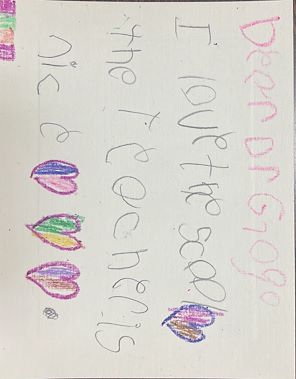 Dear Dr Gogo
I love the scool
the teacher is
nice